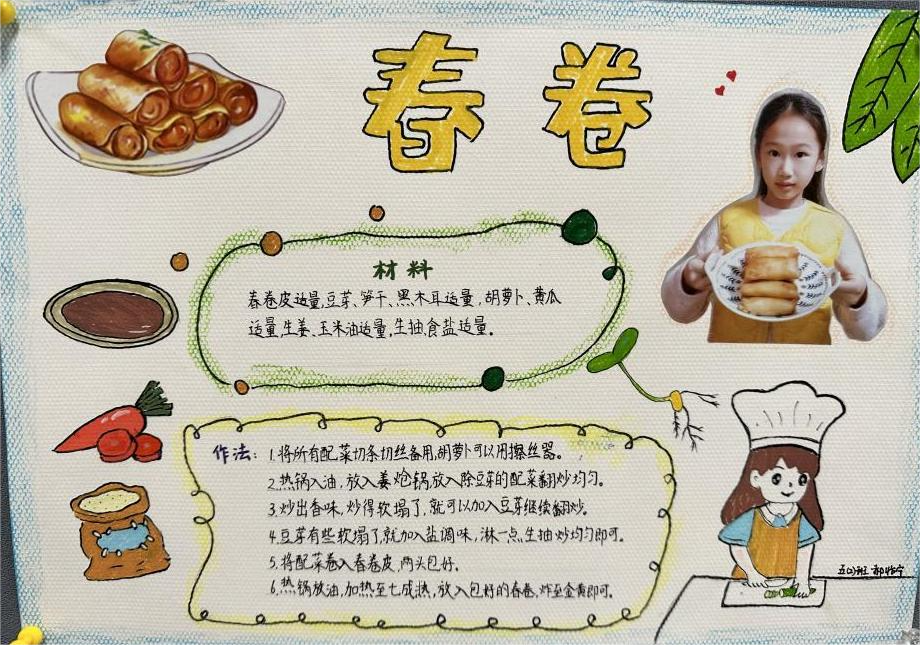 春卷
材料
春卷皮适量,豆芽、笋干、黑木耳适量,胡萝卜、黄瓜
适量,生姜、玉米油适量,生抽食盐适量。
作法:1.将所有配菜切条切丝备用,胡萝卜可以用擦丝器。
2.热锅入油,放入姜炝锅,放入除豆芽的配菜翻炒均匀。
3.炒出香味,炒得软塌了,就可以加入豆芽继续翻炒。
4.豆芽有些软塌了,就加入盐调味,淋一点生抽炒均匀即可。
5.将配菜卷入春卷皮,两头包好。
6.热锅放油,加热至七成热,放入包好的春卷,炸至金黄即可。